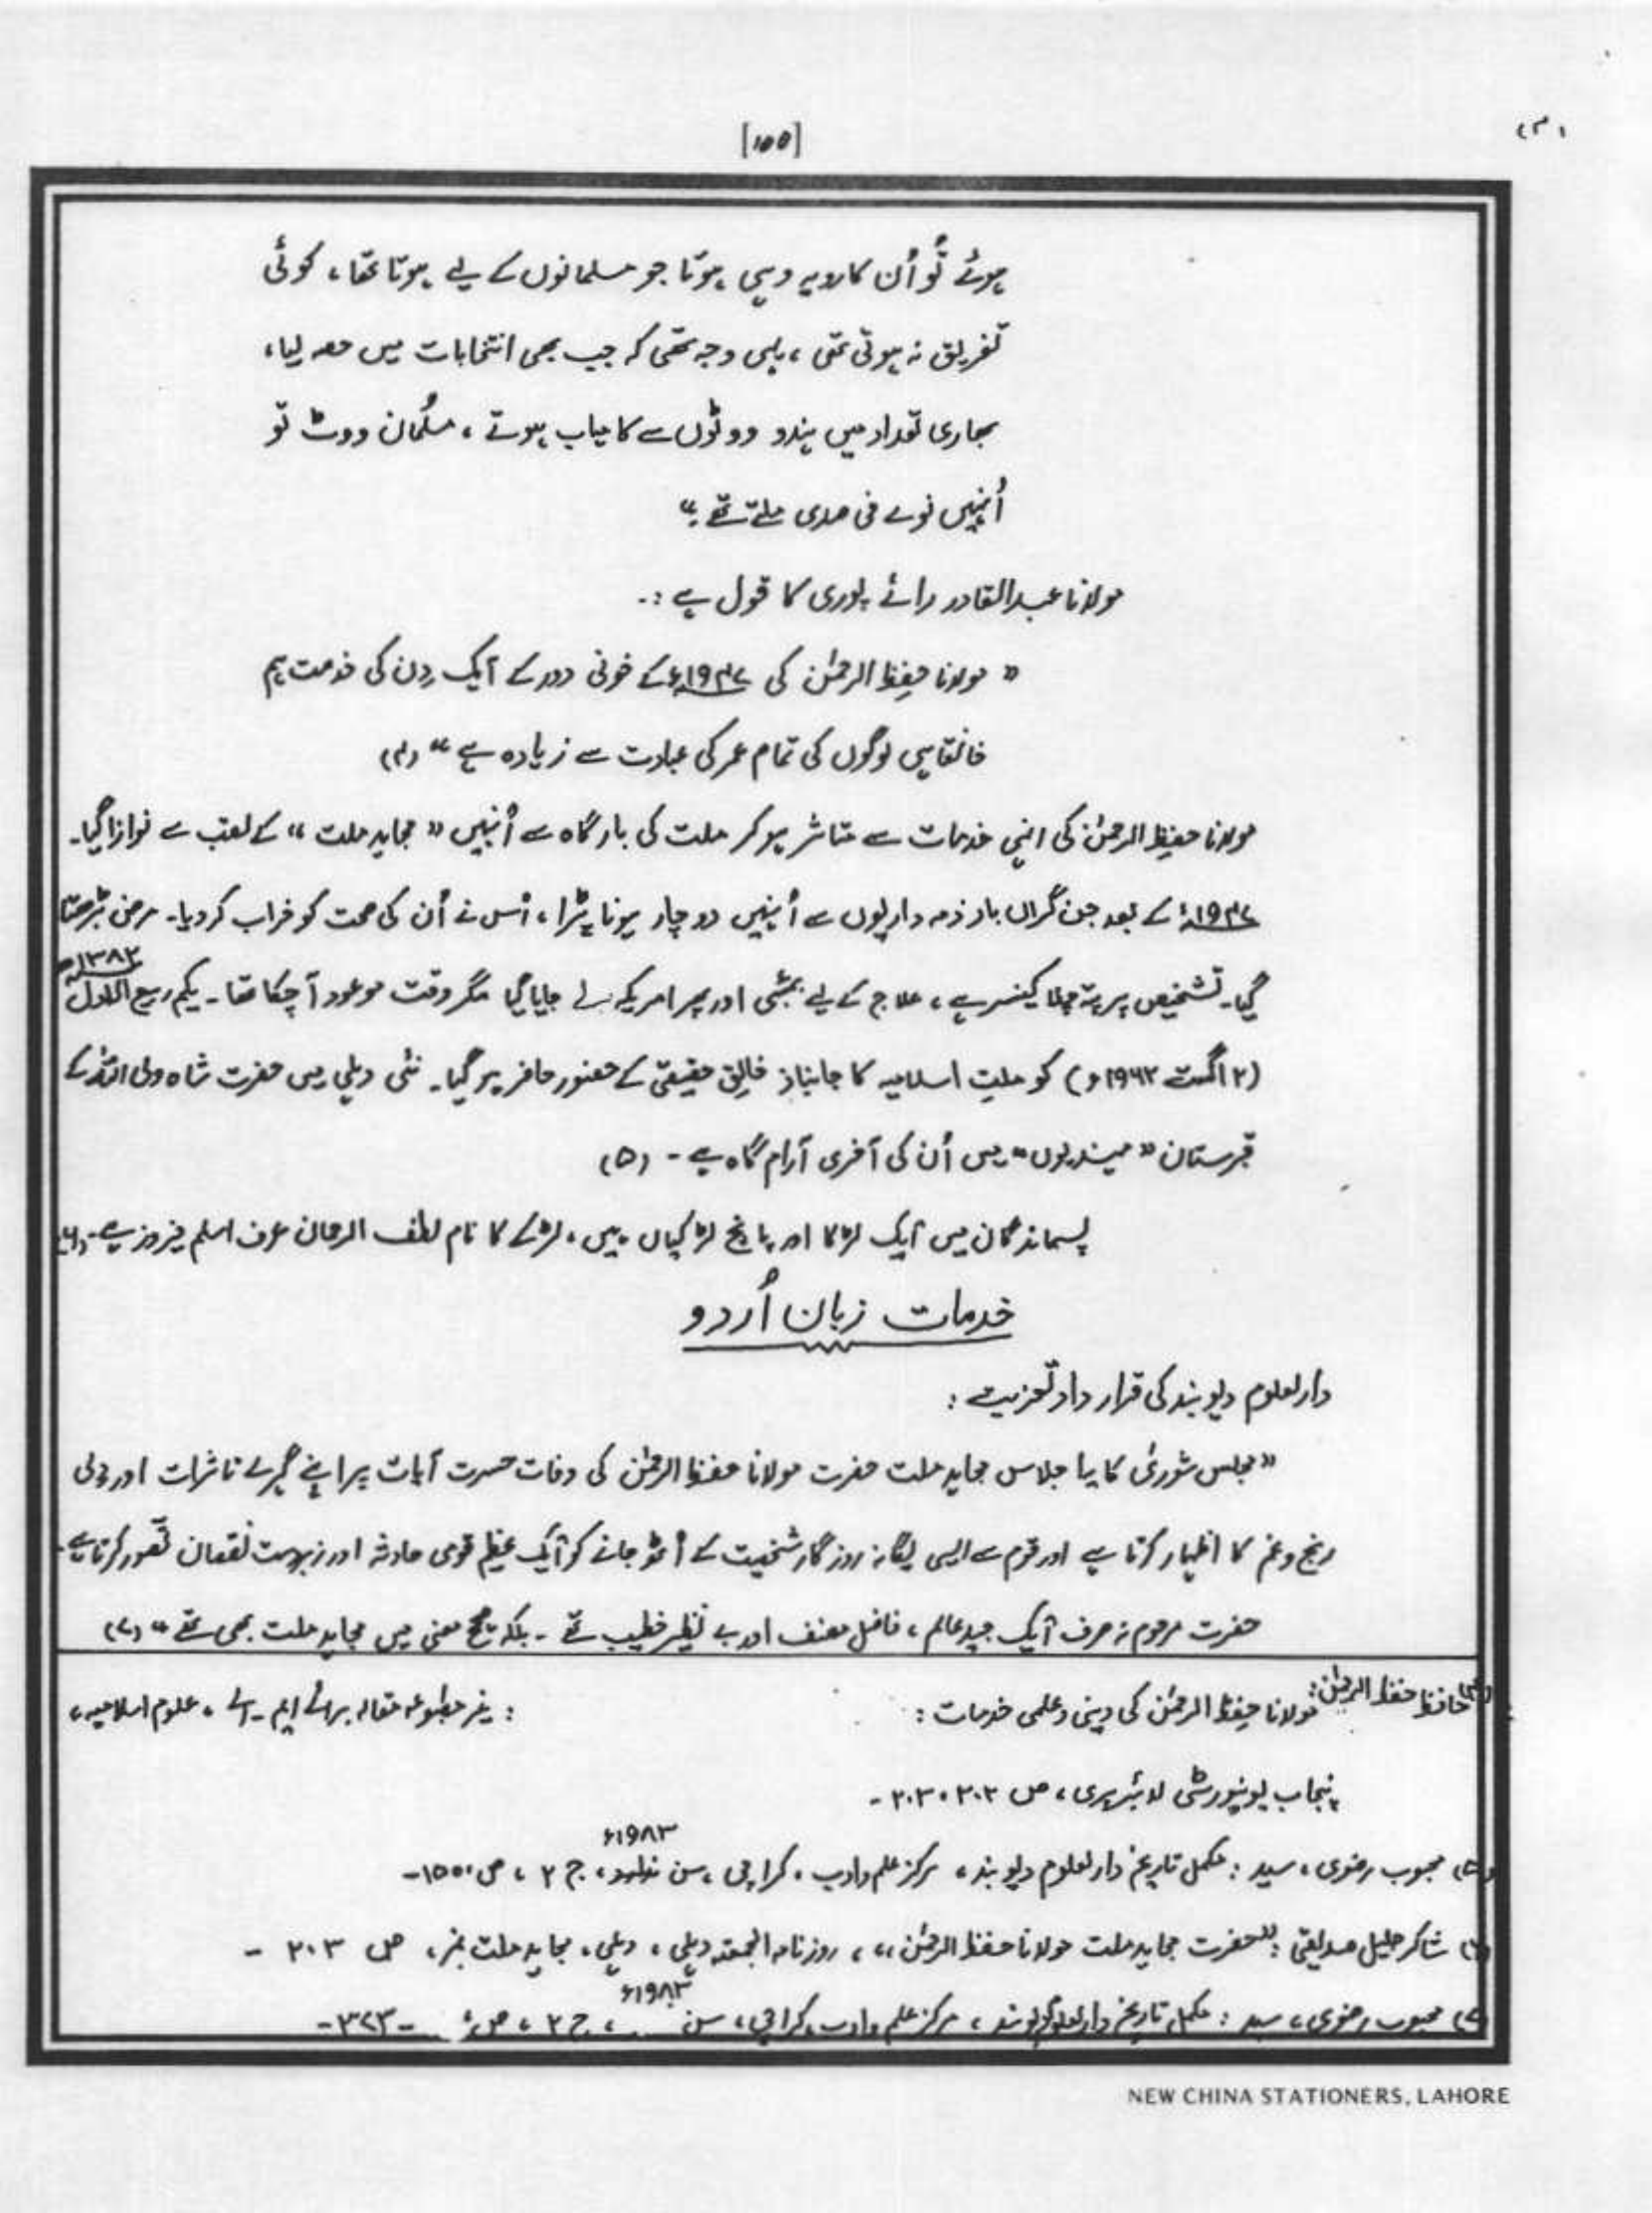 [۱۵۵]
(۳)
ہوئے تو اُن کا رویہ وہی ہوتا جو مسلمانوں کے لیے ہوتا تھا، کوئی
تفریق نہ ہوتی تھی، یہی وجہ تھی کہ جب بھی انتخابات میں حصہ لیا،
بھاری تعداد میں ہندو ووٹوں سے کامیاب ہوتے، مسلمان ووٹ تو
اُنہیں نوے فی صدی ملتے تھے۔"
مولانا عبدالقادر رائے پوری کا قول ہے :۔
"مولانا حفظ الرحمٰن کی ۱۹۴۷ء کے خونی دور کے ایک دِن کی خدمت ہم
خانقاہی لوگوں کی تمام عمر کی عبادت سے زیادہ ہے" (۴)
مولانا حفظ الرحمٰن کی انہی خدمات سے متاثر ہو کر ملت کی بارگاہ سے اُنہیں "مجاہد ملت" کے لقب سے نوازا گیا۔
۱۹۴۷ء کے بعد جن گراں بار ذمہ داریوں سے اُنہیں دوچار ہونا پڑا، اُس نے اُن کی صحت کو خراب کر دیا۔ مرض بڑھتا
گیا۔ تشخیص پر پتہ چلا کینسر ہے، علاج کے لیے بمبئی اور پھر امریکہ لے جایا گیا مگر وقت موعود آ چکا تھا۔ یکم ربیع الاول ۱۳۸۲ھ
(۲ اگست ۱۹۶۲ء) کو ملتِ اسلامیہ کا جانباز خالقِ حقیقی کے حضور حاضر ہو گیا۔ نئی دہلی میں حضرت شاہ ولی اللہ کے
قبرستان "مہندیوں" میں اُن کی آخری آرام گاہ ہے۔ (۵)
پسماندگان میں ایک لڑکا اور پانچ لڑکیاں ہیں، لڑکے کا نام لطف الرحمان عرف اسلم فیروز ہے۔ (۶)
خدمات زبان اُردو
دارالعلوم دیوبند کی قرار داد تعزیت :
"مجلس شوریٰ کا یہ اجلاس مجاہد ملت حضرت مولانا حفظ الرحمٰن کی وفات حسرت آیات پر اپنے گہرے تاثرات اور دلی
رنج و غم کا اظہار کرتا ہے اور قوم سے ایسی یگانہ روزگار شخصیت کے اُٹھ جانے کو ایک عظیم قومی حادثہ اور زبردست نقصان تصور کرتا ہے۔
حضرت مرحوم نہ صرف ایک جید عالم، فاضل مصنف اور بے نظیر خطیب تھے۔ بلکہ صحیح معنی میں مجاہد ملت بھی تھے" (۷)
(۴) حافظ حفظ الرحمٰن: مولانا حفظ الرحمٰن کی دینی و علمی خدمات : : غیر مطبوعہ مقالہ برائے ایم ۔ اے ، علوم اسلامیہ،
پنجاب یونیورسٹی لائبریری، ص ۲۰۲، ۲۰۳۔
(۵) محبوب رضوی، سید : مکمل تاریخ دارالعلوم دیوبند، مرکز علم و ادب، کراچی، سن ۱۹۸۳ء، ج ۲، ص ۱۵۵۔
(۶) شاکر جلیل صدیقی : "حضرت مجاہد ملت مولانا حفظ الرحمٰن"، روزنامہ الجمعتہ دہلی، دہلی، مجاہد ملت نمبر، ص ۲۰۳ ۔
(۷) محبوب رضوی، سید : مکمل تاریخ دارالعلوم دیوبند، مرکز علم و ادب، کراچی، سن ۱۹۸۳ء، ج ۲، ص ۳۷۳۔
NEW CHINA STATIONERS, LAHORE